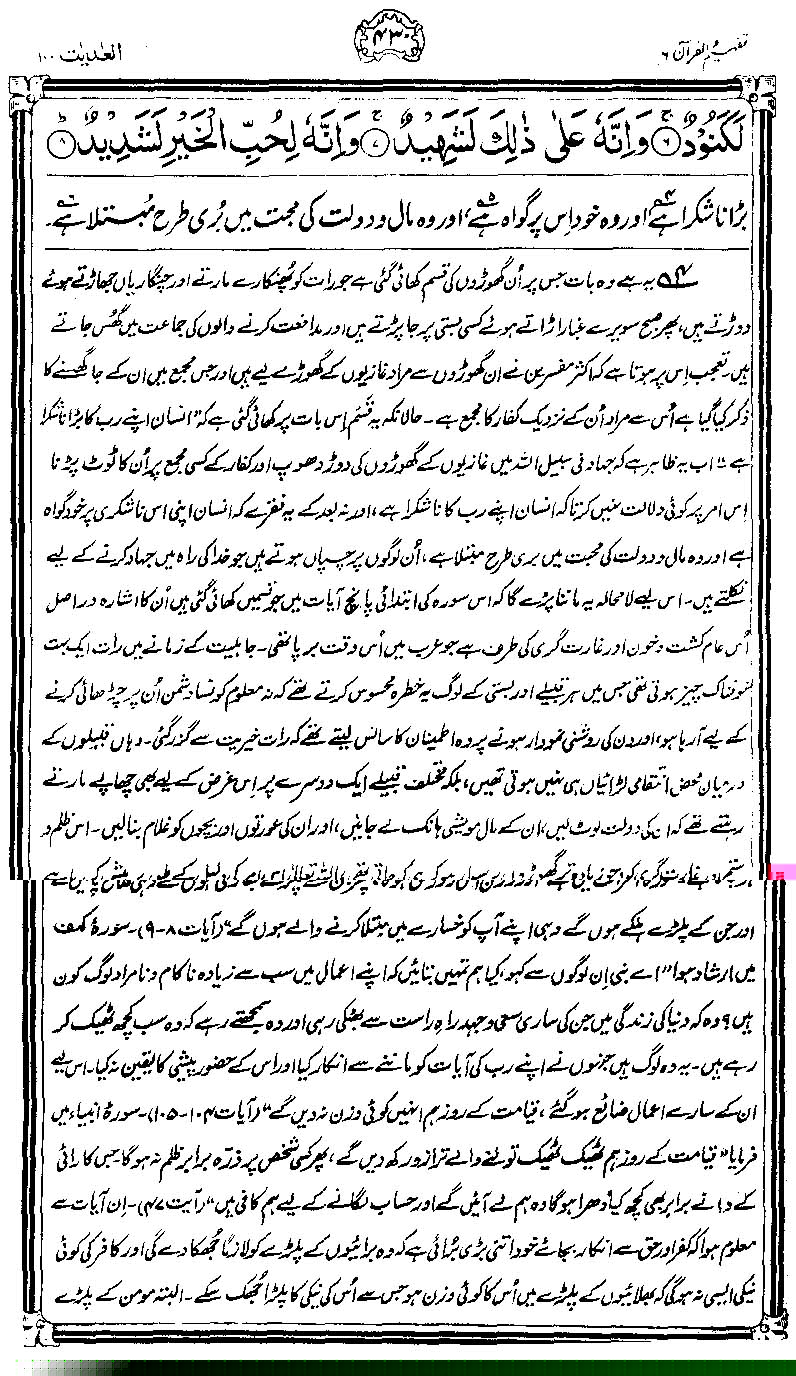 تفہیم القرآن ۶
۴۳۰
العٰدیٰت ۱۰۰
لَكَنُوْدٌ ۚ﴿۶﴾ وَاِنَّهٗ عَلٰى ذٰلِكَ لَشَهِيْدٌ ۚ﴿۷﴾ وَاِنَّهٗ لِحُبِّ الْخَيْرِ لَشَدِيْدٌ ؕ﴿۸﴾
بڑا ناشکرا ہے۴، اور وہ خود اِس پر گواہ ہے۵، اور وہ مال و دولت کی محبت میں بُری طرح مبتلا ہے۶۔
۴ یہ ہے وہ بات جس پر اُن گھوڑوں کی قسم کھائی گئی ہے جو رات کو پھنکارے مارتے اور چنگاریاں جھاڑتے ہوئے
دوڑتے ہیں، پھر صبح سویرے غبار اڑاتے ہوئے کسی بستی پر جا پڑتے ہیں اور مدافعت کرنے والوں کی جماعت میں گھُس جاتے
ہیں۔ تعجب اِس پر ہوتا ہے کہ اکثر مفسرین نے ان گھوڑوں سے مراد غازیوں کے گھوڑے لیے ہیں اور جس مجمع میں ان کے جا گھسنے کا
ذکر کیا گیا ہے اُس سے مراد اُن کے نزدیک کفار کا مجمع ہے۔ حالانکہ یہ قسم اِس بات پر کھائی گئی ہے کہ "انسان اپنے رب کا بڑا ناشکرا
ہے"۔ اب یہ ظاہر ہے کہ جہاد فی سبیل اللہ میں غازیوں کے گھوڑوں کی دوڑ دھوپ اور کفار کے کسی مجمع پر اُن کا ٹوٹ پڑنا
اِس امر پر کوئی دلالت نہیں کرتا کہ انسان اپنے رب کا ناشکرا ہے، اور نہ بعد کے یہ فقرے کہ انسان اپنی اس ناشکری پر خود گواہ
ہے اور وہ مال و دولت کی محبت میں بری طرح مبتلا ہے، اُن لوگوں پر چسپاں ہوتے ہیں جو خدا کی راہ میں جہاد کرنے کے لیے
نکلتے ہیں۔ اس لیے لامحالہ یہ ماننا پڑے گا کہ اس سورہ کی ابتدائی پانچ آیات میں جو قسمیں کھائی گئی ہیں اُن کا اشارہ دراصل
اُس عام کشت و خون اور غارت گری کی طرف ہے جو عرب میں اُس وقت برپا تھی۔ جاہلیت کے زمانے میں رات ایک بہت
خوفناک چیز ہوتی تھی جس میں ہر قبیلے اور بستی کے لوگ یہ خطرہ محسوس کرتے تھے کہ نہ معلوم کونسا دشمن اُن پر چڑھائی کرنے
کے لیے آ رہا ہو، اور دن کی روشنی نمودار ہونے پر وہ اطمینان کا سانس لیتے تھے کہ رات خیریت سے گزر گئی۔ وہاں قبیلوں کے
درمیان محض انتقامی لڑائیاں ہی نہیں ہوتی تھیں، بلکہ مختلف قبیلے ایک دوسرے پر اِس غرض کے لیے بھی چھاپے مارتے
رہتے تھے کہ ان کی دولت لوٹ لیں، ان کے مال مویشی ہانک لے جائیں، اور ان کی عورتوں اور بچوں کو غلام بنا لیں۔ اس ظلم و
اور جن کے پلڑے ہلکے ہوں گے وہی اپنے آپ کو خسارے میں مبتلا کرنے والے ہوں گے" (آیات ۸-۹)۔ سورۂ کہف
میں ارشاد ہوا "اے نبی اِن لوگوں سے کہو، کیا ہم تمہیں بتائیں کہ اپنے اعمال میں سب سے زیادہ ناکام و نامراد لوگ کون
ہیں؟ وہ کہ دنیا کی زندگی میں جن کی ساری سعی و جہد راہِ راست سے بھٹکی رہی اور وہ سمجھتے رہے کہ وہ سب کچھ ٹھیک کر
رہے ہیں۔ یہ وہ لوگ ہیں جنہوں نے اپنے رب کی آیات کو ماننے سے انکار کیا اور اس کے حضور پیشی کا یقین نہ کیا۔ اس لیے
ان کے سارے اعمال ضائع ہو گئے، قیامت کے روز ہم انہیں کوئی وزن نہ دیں گے" (آیات ۱۰۴-۱۰۵)۔ سورۂ انبیاء میں
فرمایا "قیامت کے روز ہم ٹھیک ٹھیک تولنے والے ترازو رکھ دیں گے، پھر کسی شخص پر ذرہ برابر ظلم نہ ہو گا، جس کا رائی
کے دانے برابر بھی کچھ کیا دھرا ہو گا وہ ہم لے آئیں گے اور حساب لگانے کے لیے ہم کافی ہیں" (آیت ۴۷)۔ اِن آیات سے
معلوم ہوا کہ کفر اور حق سے انکار بجائے خود اتنی بڑی بُرائی ہے کہ وہ برائیوں کے پلڑے کو لازماً جھکا دے گی اور کافر کی کوئی
نیکی ایسی نہ ہو گی کہ بھلائیوں کے پلڑے میں اُس کا کوئی وزن ہو جس سے اُس کی نیکی کا پلڑا جھک سکے۔ البتہ مومن کے پلڑے